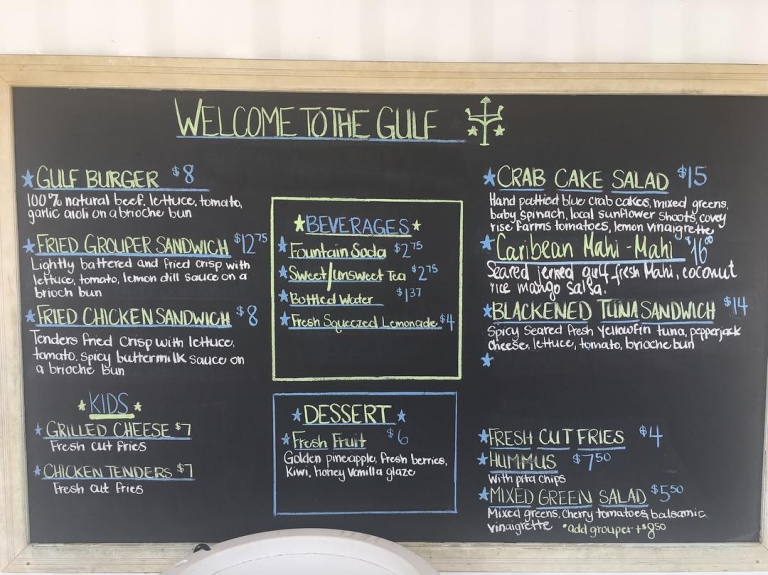 WELCOME TO THE GULF
GULF BURGER $8
100% natural beef, lettuce, tomato,
garlic aioli on a brioche bun
FRIED GROUPER SANDWICH $12.75
Lightly battered and fried crisp with
lettuce, tomato, lemon dill sauce on a
brioch bun
FRIED CHICKEN SANDWICH $8
Tenders fried crisp with lettuce,
tomato, spicy buttermilk sauce on
a brioche bun
KIDS
GRILLED CHEESE $7
Fresh cut fries
CHICKEN TENDERS $7
Fresh cut fries
BEVERAGES
Fountain Soda $2.75
Sweet/Unsweet Tea $2.75
Bottled Water $1.37
Fresh Squeezed Lemonade $4
DESSERT
Fresh Fruit $6
Golden pineapple, fresh berries,
Kiwi, honey Vanilla glaze
CRAB CAKE SALAD $15
Hand pattied blue crab cakes, mixed greens,
baby spinach, local sunflower shoots, covey
rise farms tomatoes, lemon vinaigrette
Caribean Mahi-Mahi $16
Seared jerked gulf fresh Mahi, coconut
rice mango salsa.
BLACKENED TUNA SANDWICH $14
Spicy seared fresh yellowfin tuna, pepperjack
cheese, lettuce, tomato, brioche bun
FRESH CUT FRIES $4
HUMMUS $7.50
with pita chips
MIXED GREEN SALAD $5.50
Mixed greens, cherry tomatoes, balsamic
vinaigrette *add grouper +$8.50